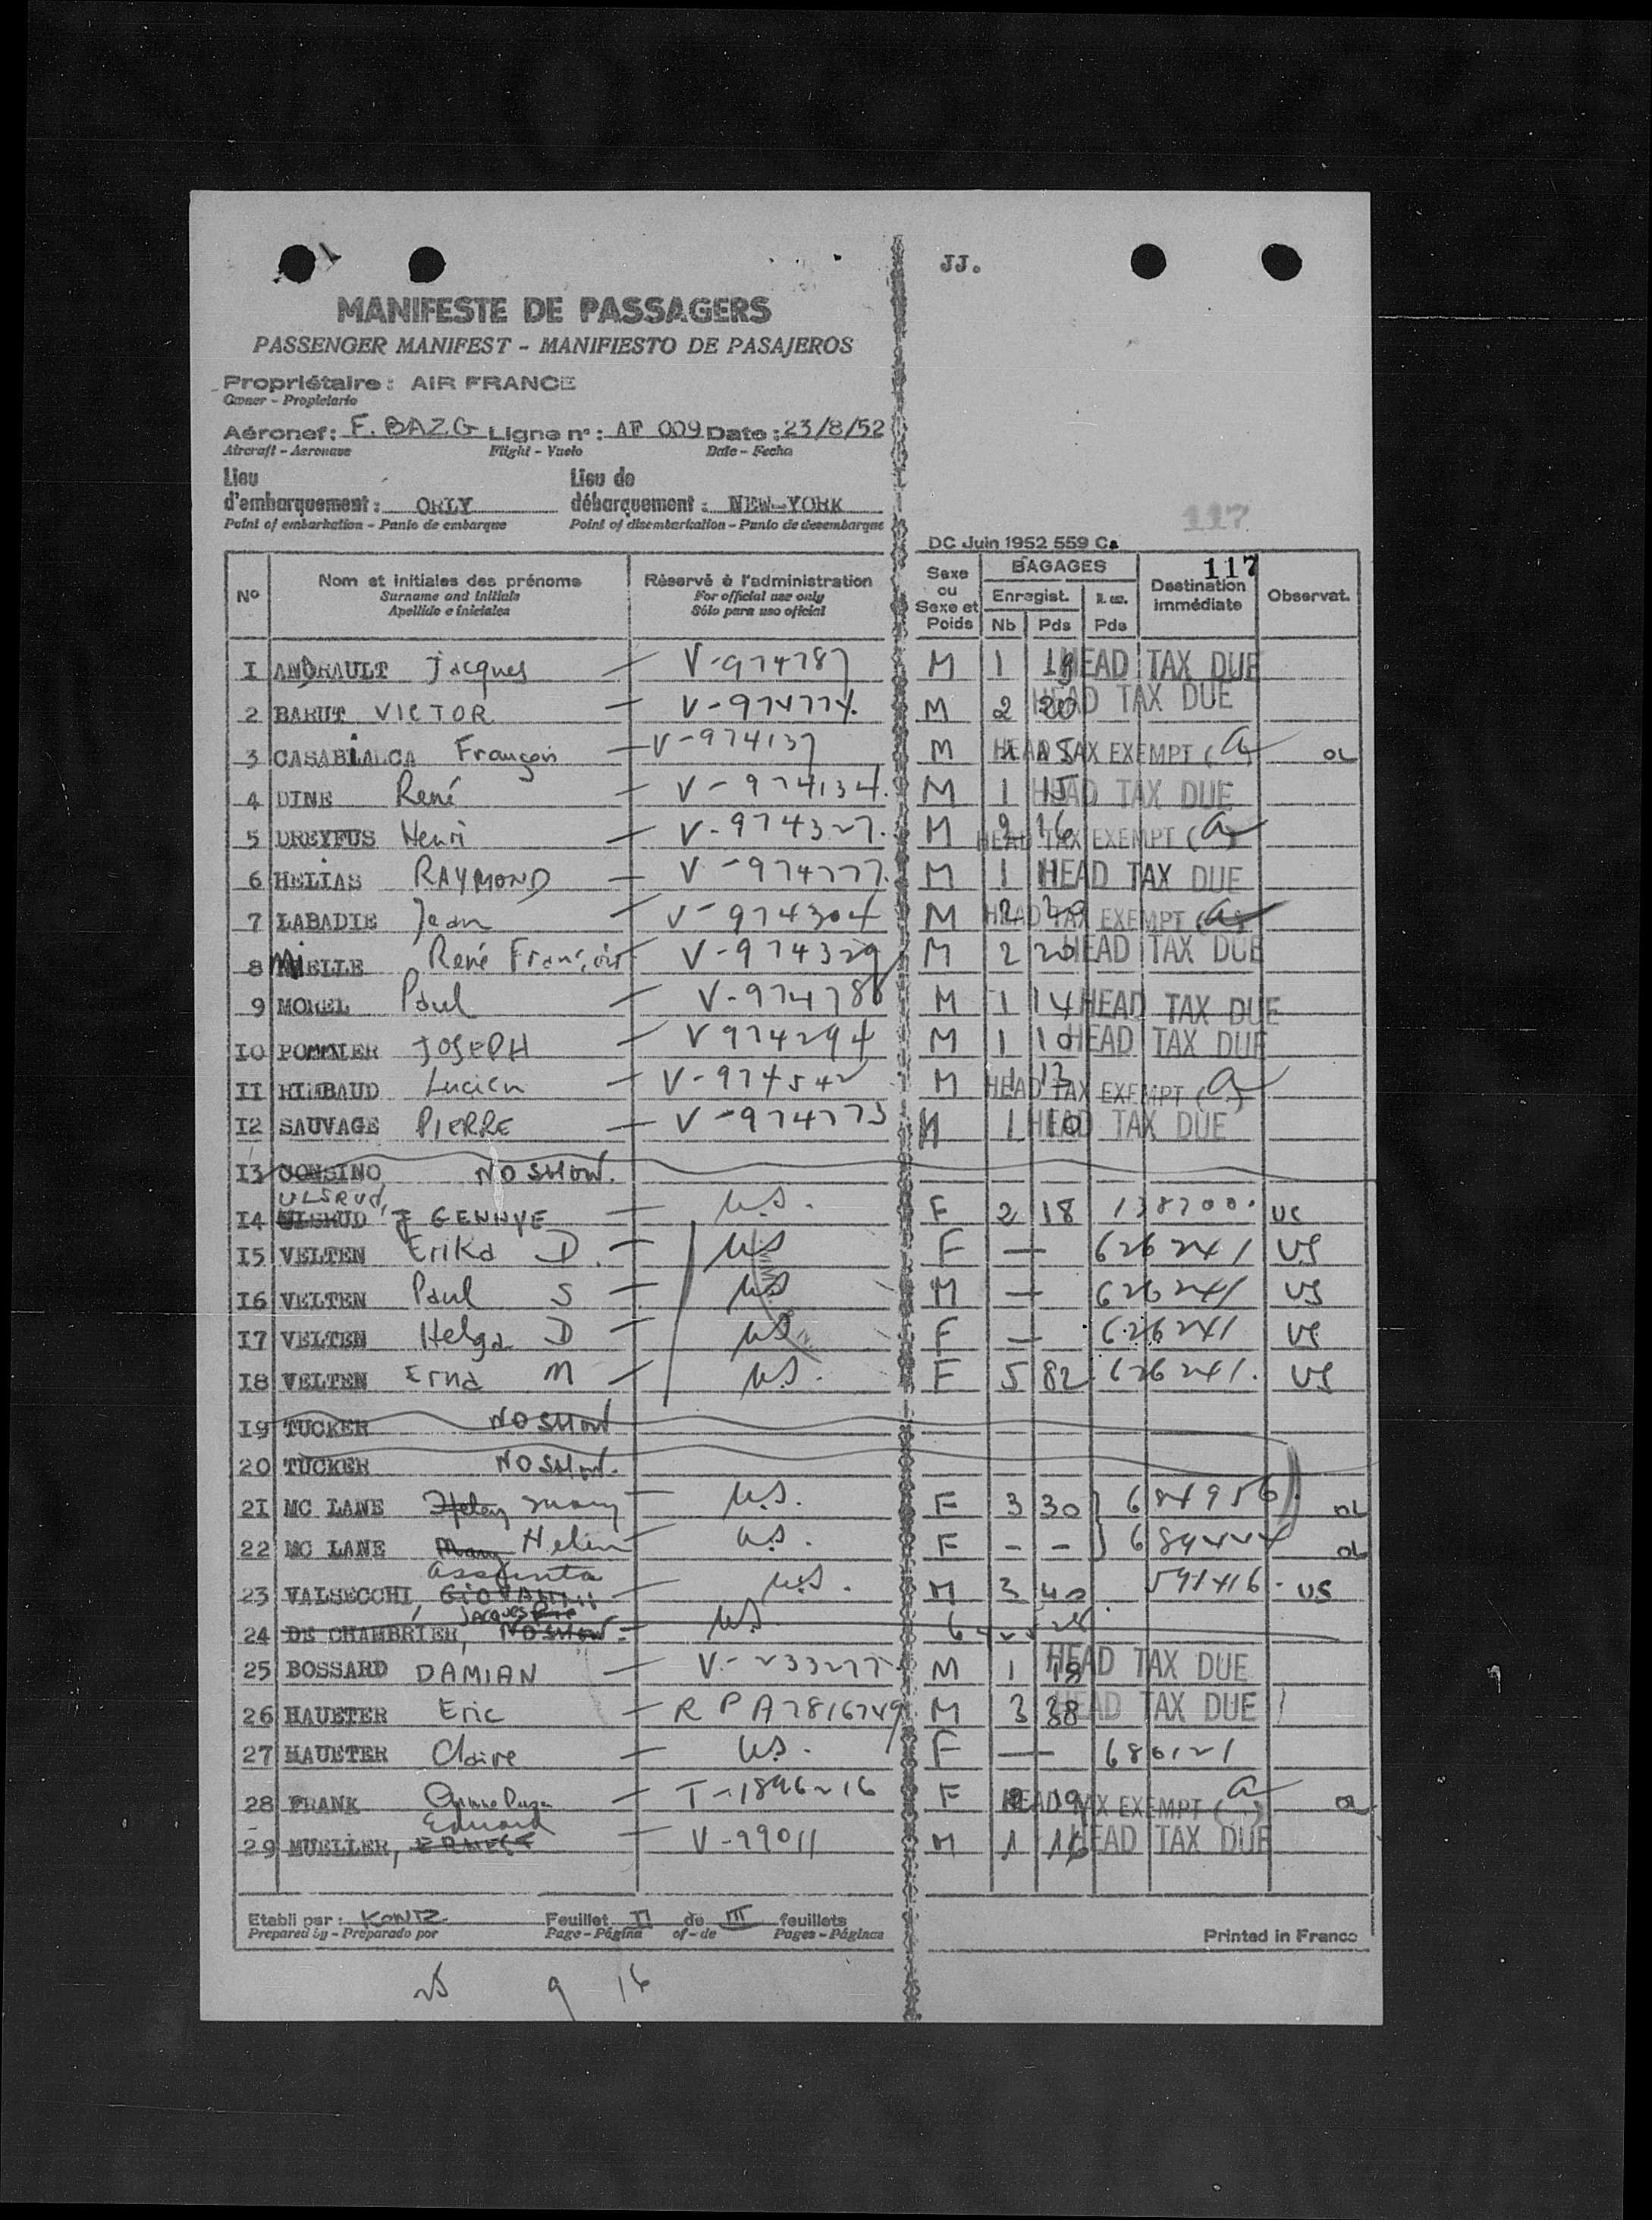 JJ.
MANIFESTE DE PASSAGERS
PASSENGER MANIFEST - MANIFIESTO DE PASAJEROS
Propriétaire : AIR FRANCE
Owner - Propietario
Aéronef : F. BAZG Ligne n° : AF 009 Date : 23/8/52
Aircraft - Aeronave Flight - Vuelo Date - Fecha
Lieu d'embarquement : ORLY Lieu de débarquement : NEW-YORK
Point of embarkation - Punto de embarque Point of disembarkation - Punto de desembarque
117
DC Juin 1952 559 Ca
117
N° Nom et initiales des prénoms Réservé à l'administration Sexe ou Sexe et Poids BAGAGES Destination immédiate Observat.
Surname and initials For official use only Enregist.
Apellido e iniciales Sólo para uso oficial Nb Pds Pds
1 ANDRAULT Jacques — V-974787 M 1 HEAD TAX DUE
2 BARUT VICTOR — V-974774 M 2 20 HEAD TAX DUE
3 CASABIANCA François — V-974137 M HEAD TAX EXEMPT (a)
4 DINE René — V-974134. M 1 15 HEAD TAX DUE
5 DREYFUS Henri — V-974327. M 2 16 HEAD TAX EXEMPT (a)
6 HELIAS RAYMOND — V-974777. M 1 HEAD TAX DUE
7 LABADIE Jean — V-974304 M 2 HEAD TAX EXEMPT (a)
8 MIELLE René François — V-974329 M 2 20 HEAD TAX DUE
9 MOREL Paul — V-974788 M 1 14 HEAD TAX DUE
10 POMMIER JOSEPH — V 974294 M 1 10 HEAD TAX DUE
11 RIMBAUD Lucien — V-974542 M 1 13 HEAD TAX EXEMPT (a)
12 SAUVAGE PIERRE — V-974773 M 1 10 HEAD TAX DUE
13 COUSINO NO SHOW.
ULSRUD,
14 GENNYE — U.S. F 2 18 138700. US
15 VELTEN Erika D. — US F — 626241 US
16 VELTEN Paul S — US M — 626241 US
17 VELTEN Helga D — US F — 626241 US
18 VELTEN Erna M — U.S. F 5 82 626241. US
19 TUCKER NO SHOW
20 TUCKER NO SHOW.
21 MC LANE Helen Mary — U.S. F 3 30 684956
22 MC LANE Mary Helen — U.S. F - - 689444
Assunta
23 VALSECCHI, GIOVANNI — U.S. M 3 40 591416. US
Jacques
24 DE CHAMBRIER, NO SHOW. — US
25 BOSSARD DAMIAN — V-233277 M 1 18 HEAD TAX DUE
26 HAUETER Eric — R P A7816749 M 3 38 HEAD TAX DUE
27 HAUETER Claire — U.S. F — 680121
28 FRANK — T-1896216 F 19 HEAD TAX EXEMPT (a)
Eduard
29 MUELLER, ERNEST — V-99011 M 1 16 HEAD TAX DUE
Etabli par : KONTZ Feuillet II de III feuillets
Prepared by - Preparado por Page - Página of - de Pages - Páginas
Printed in France
25 9 16